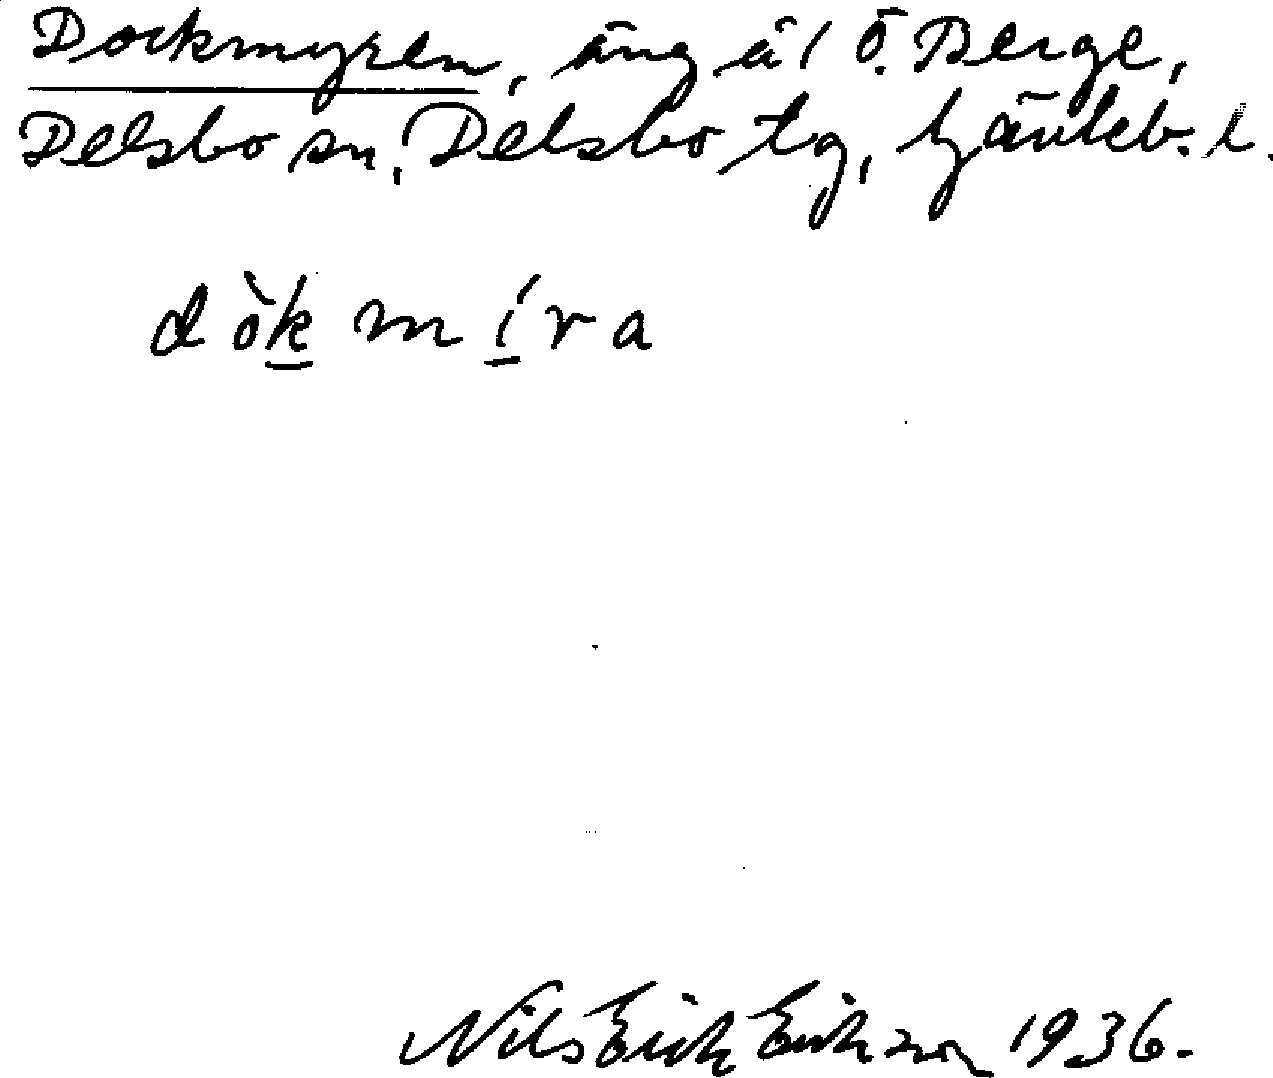 Dockmyren, äng å 1 Ö. Berge,
Delsbo sn, Delsbo tg, Gävleb. l.
dòk míra
Nils Erik Erikson 1936.